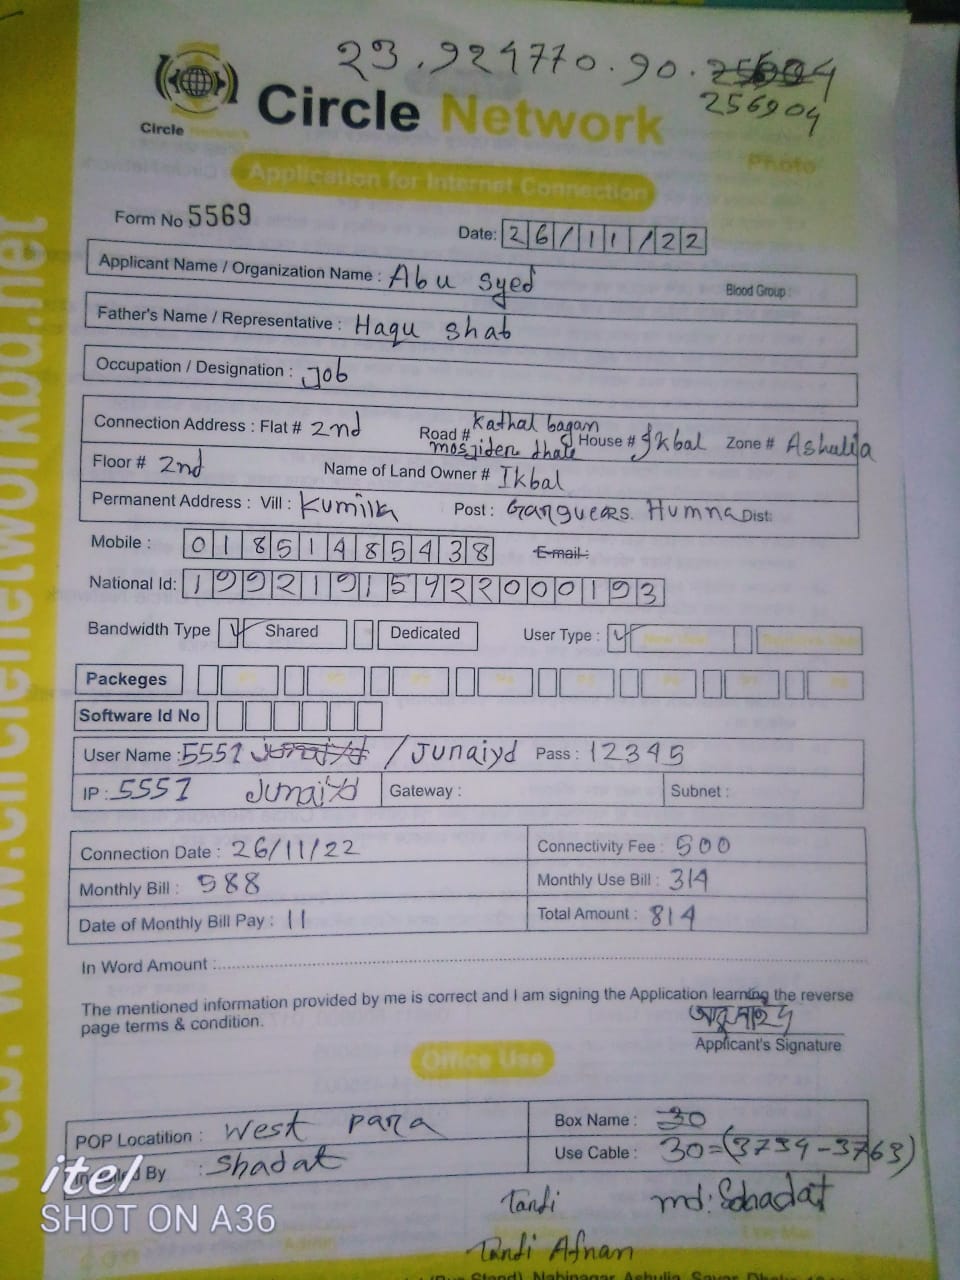 23.924770.90.
256904
Circle Network
Circle Network
Application for Internet Connection
Photo
Form No 5569
Date: 26/11/22
Applicant Name / Organization Name : Abu Syed Blood Group :
Father's Name / Representative : Haqu Shab
Occupation / Designation : Job
Connection Address : Flat # 2nd Road # Kathal bagan mosjiden thale House # Ikbal Zone # Ashulia
Floor # 2nd Name of Land Owner # Ikbal
Permanent Address : Vill : Kumilla Post : Humna Dist:
Mobile : 01851485438 E-mail :
National Id: 19921915422000193
Bandwidth Type ✓ Shared Dedicated User Type : ✓
Packeges
Software Id No
User Name : 5551 Junaiyd / Junaiyd Pass : 12345
IP : 5551 Junaiyd Gateway : Subnet :
Connection Date : 26/11/22 Connectivity Fee : 500
Monthly Bill : 588 Monthly Use Bill : 314
Date of Monthly Bill Pay : 11 Total Amount : 814
In Word Amount :
The mentioned information provided by me is correct and I am signing the Application learning the reverse
page terms & condition.
Applicant's Signature
Office Use
POP Locatition : West para Box Name : 30
By : Shadat Use Cable : 30=(3734-3763)
Tandi md: Sohadat
Tandi Afnan
Nabinagar, Ashulia, Savar, Dhaka
web: www.circlenetworkbd.net
itel
SHOT ON A36